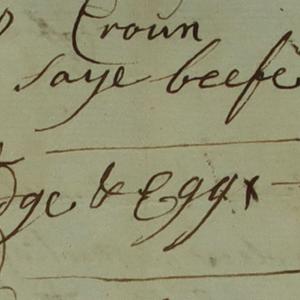 Croun
saye beefe
dge & Eggs